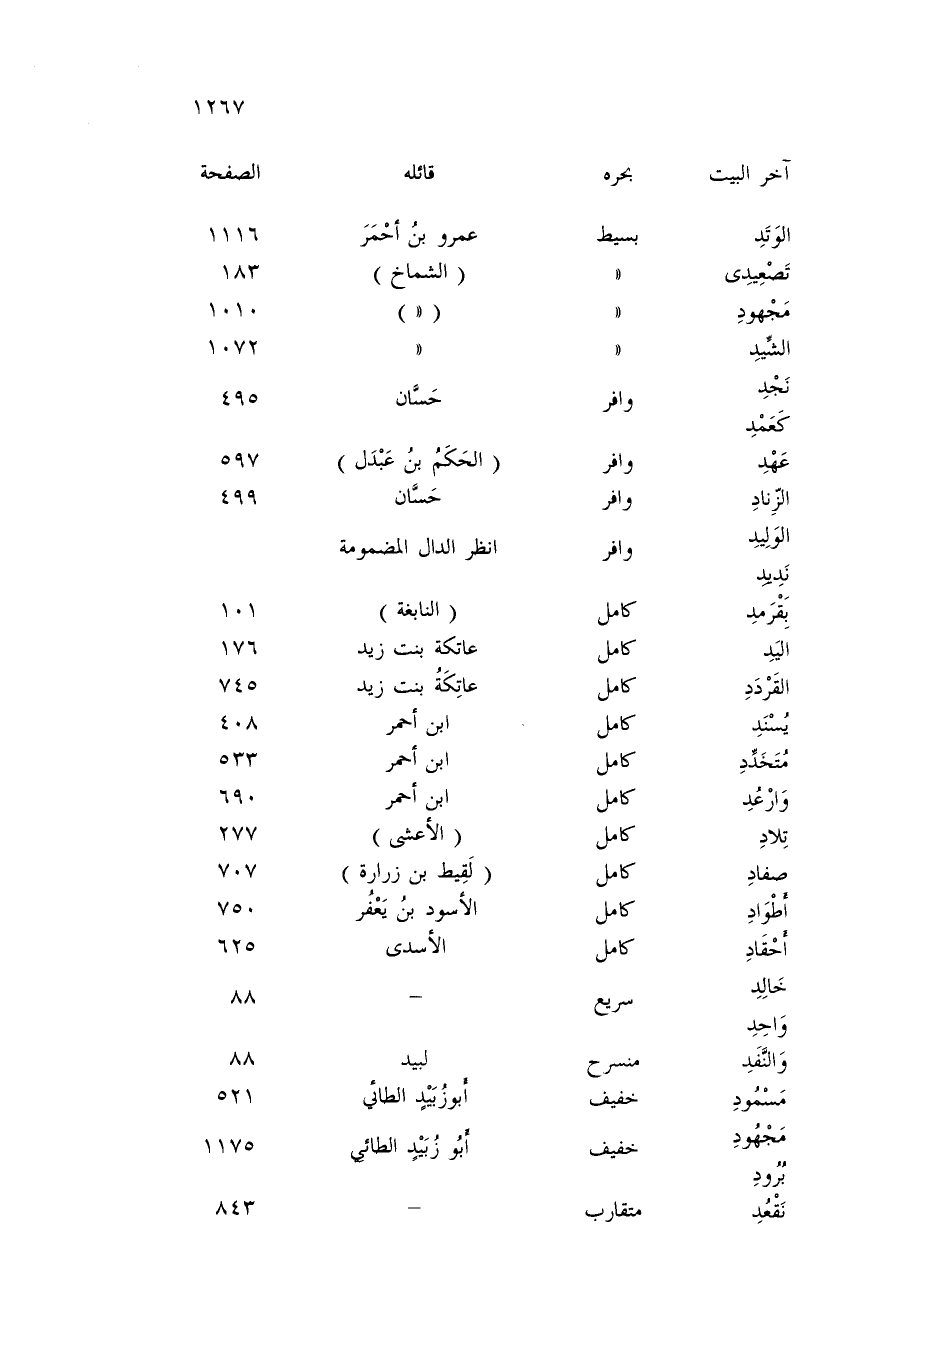 ١٢٦٧
آخر البيت بحره قائله الصفحة
الوَتَدِ بسيط عمرو بنُ أحْمَرَ ١١١٦
تَصْعِيدِى « ( الشماخ ) ١٨٣
مَجْهودِ « ( « ) ١٠١٠
الشِّيدِ « « ١٠٧٢
نَجْدِ
وافر حَسَّان ٤٩٥
كَعَمْدِ
عَهْدِ وافر ( الحَكَمُ بنُ عَبْدَل ) ٥٩٧
الزّنادِ وافر حَسَّان ٤٩٩
الوَلِيدِ
وافر انظر الدال المضمومة
نَدِيدِ
بَقْرَمدِ كامل ( النابغة ) ١٠١
اليَدِ كامل عاتكة بنت زيد ١٧٦
القَرْدَدِ كامل عاتِكَةُ بنت زيد ٧٤٥
يُسْنَدِ كامل ابن أحمر ٤٠٨
مُتَخَدِّدِ كامل ابن أحمر ٥٣٣
وَارْعُدِ كامل ابن أحمر ٦٩٠
تِلادِ كامل ( الأعشى ) ٢٧٧
صفادِ كامل ( لَقِيط بن زرارة ) ٧٠٧
أَطْوَادِ كامل الأسود بنُ يَعْفُر ٧٥٠
أَحْقَادِ كامل الأسدى ٦٢٥
خَالِدِ
سريع – ٨٨
وَاحِدِ
وَالنَّفَدِ منسرح لبيد ٨٨
مَسْمُودِ خفيف أَبوزُبَيْدٍ الطائي ٥٢١
مَجْهُودِ
خفيف أَبُو زُبَيْدٍ الطائيِ ١١٧٥
بُرُودِ
نَقْعُدِ متقارب – ٨٤٣